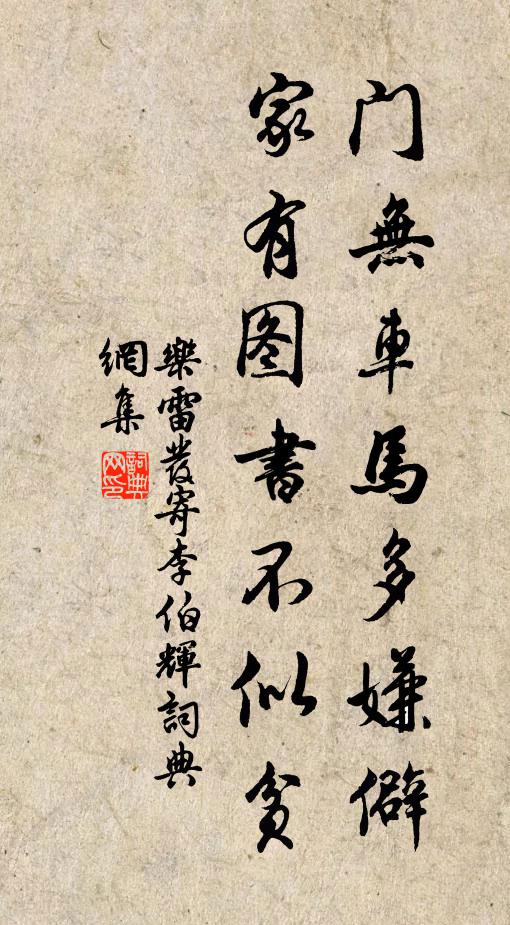 门無車馬多嫌僻
家有图書不似貧
樂雷發寄李伯輝詞典
網集
詞典
网印